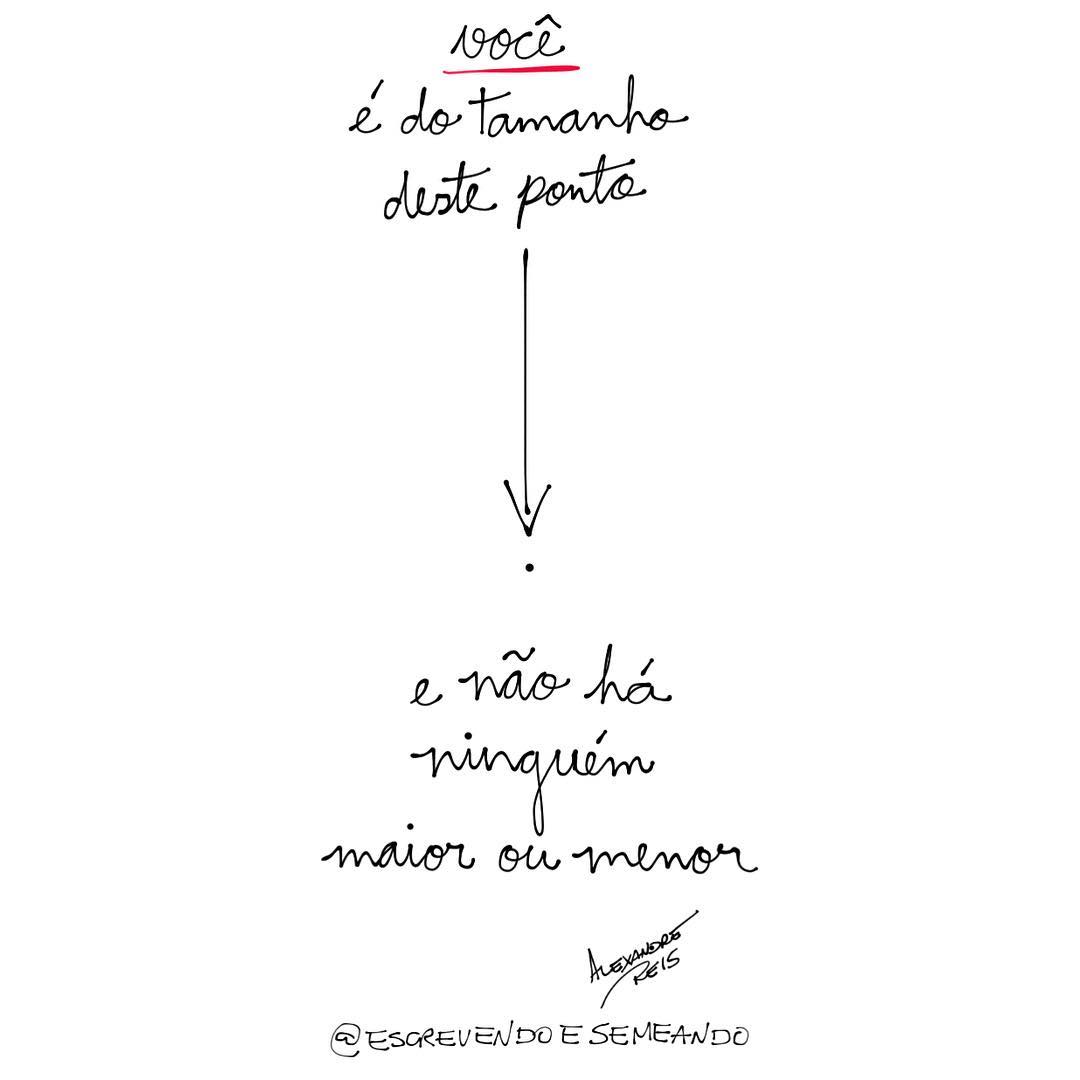 você
é do tamanho
deste ponto
.
e não há
ninguém
maior ou menor
ALEXANDRE
REIS
@ESCREVENDO E SEMEANDO